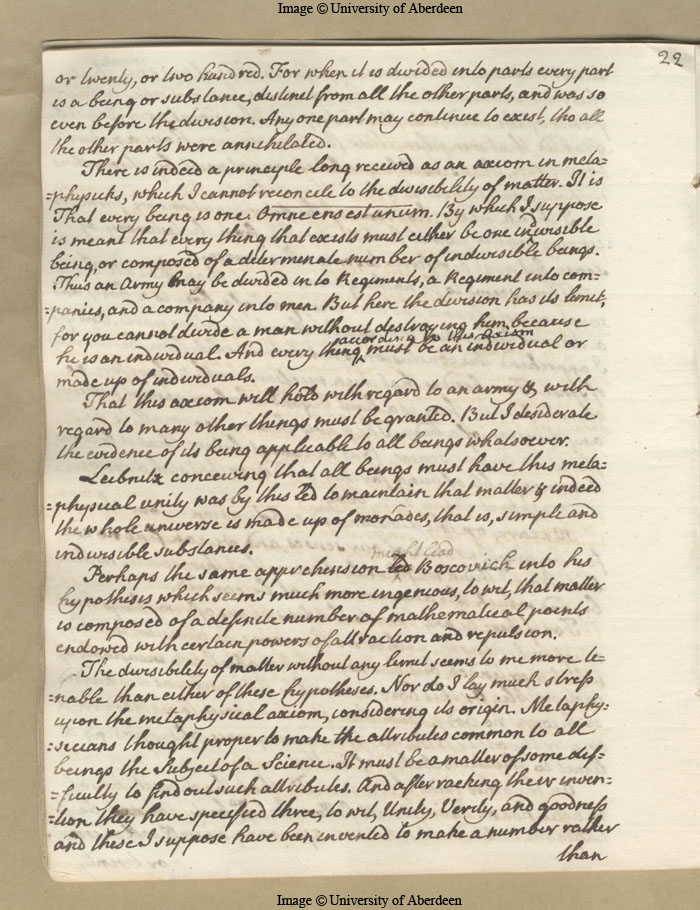 Image © University of Aberdeen
22
or twenty, or two hundred. For when it is divided into parts every part
is a being or substance, distinct from all the other parts, and was so
even before the division. Any one part may continue to exist, tho all
the other parts were annihilated.
There is indeed a principle long received as an axiom in meta=
=physicks, which I cannot reconcile to the divisibility of matter. It is
That every being is one. Omne ens est unum. By which I suppose
is meant that every thing that exists must either be one indivisible
being, or composed of a determinate number of indivisible beings.
Thus an Army may be divided into Regiments, a Regiment into com=
=panies, and a company into men. But here the division has its limit,
for you cannot divide a man without destroying him because
according to this axiom
he is an individual. And every thing ‸ must be an individual or
made up of individuals.
That this axiom will hold with regard to an army & with
regard to many other things must be granted. But I desiderate
the evidence of its being applicable to all beings whatsoever.
Leibnitz conceiving that all beings must have this meta=
=physical unity was by this led to maintain that matter & indeed
the whole universe is made up of monades, that is, simple and
indivisible substances.
might lead
Perhaps the same apprehension led Boscovich into his
hypothesis which seems much more ingenious, to wit, that matter
is composed of a definite number of mathematical points
endowed with certain powers of attraction and repulsion.
The divisibility of matter without any limit seems to me more te=
=nable than either of these hypotheses. Nor do I lay much stress
upon the metaphysical axiom, considering its origin. Metaphy=
=sicians thought proper to make the attributes common to all
beings the Subject of a Science. It must be a matter of some dif=
=ficulty to find out such attributes. And after racking their inven=
=tion they have specified three, to wit, Unity, Verity, and goodness
and these I suppose have been invented to make a number rather
than
Image © University of Aberdeen